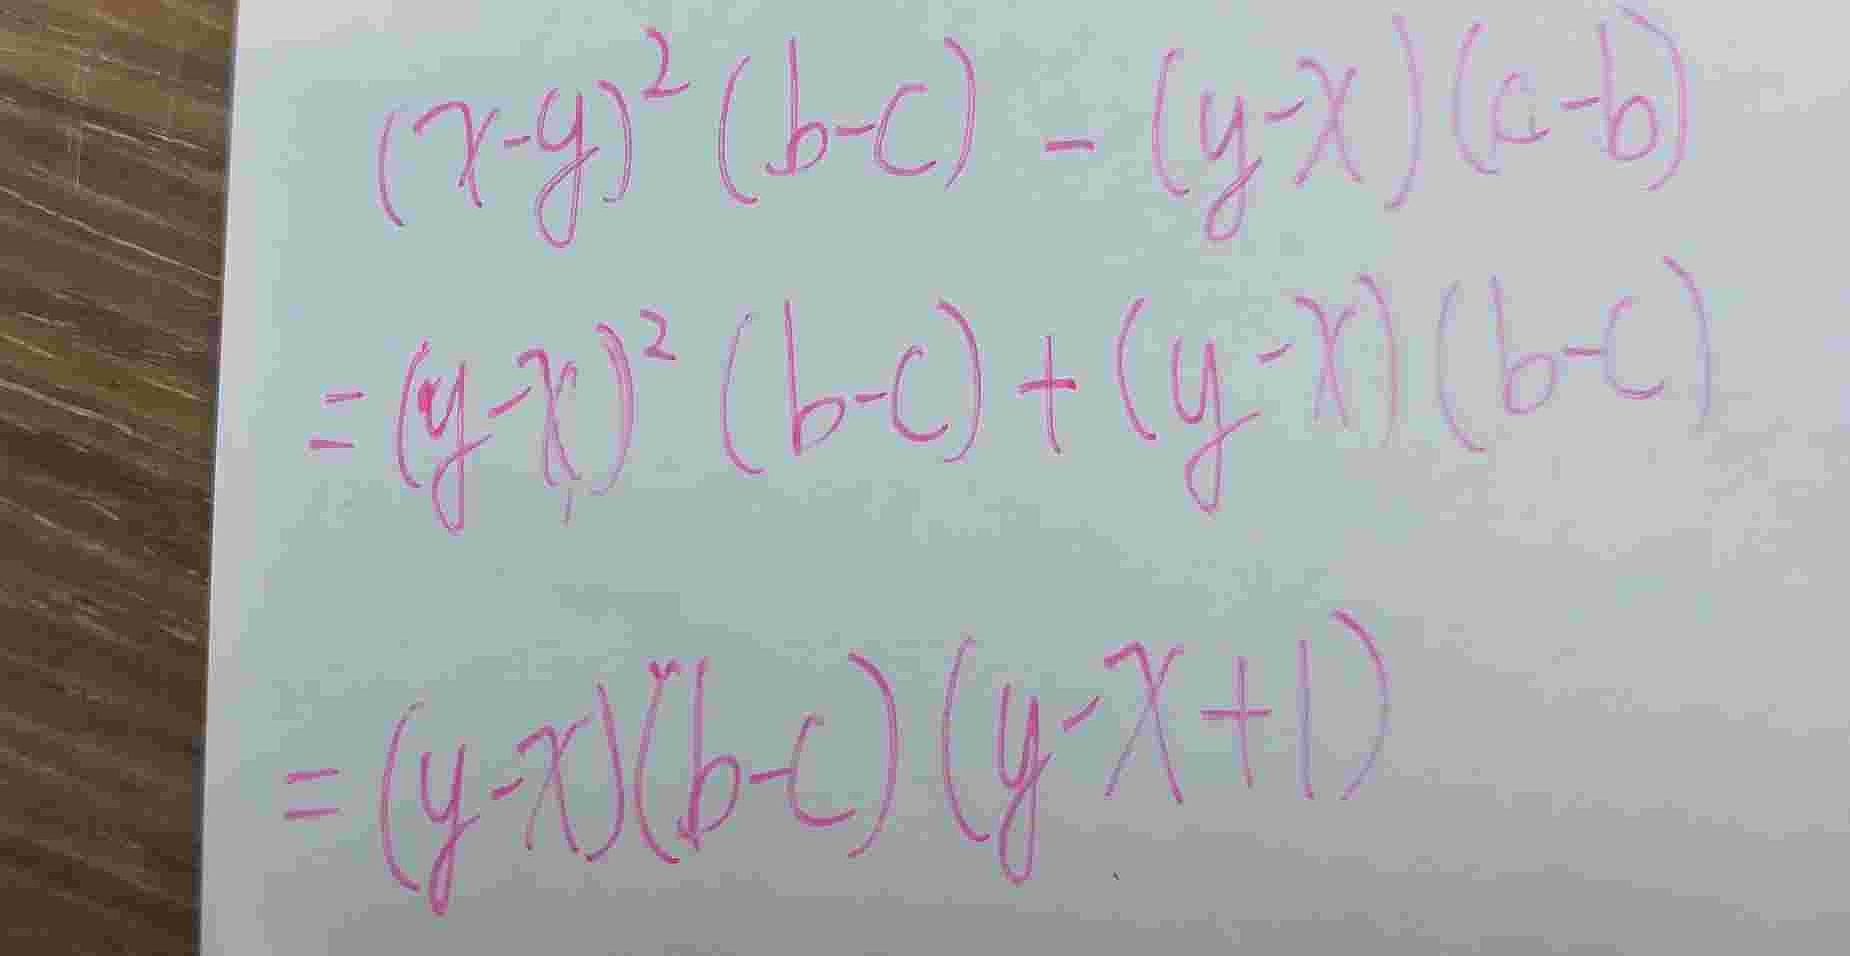 (x-y)² (b-c) - (y-x)(c-b)
= (y-x)² (b-c) + (y-x)(b-c)
= (y-x)(b-c)(y-x+1)